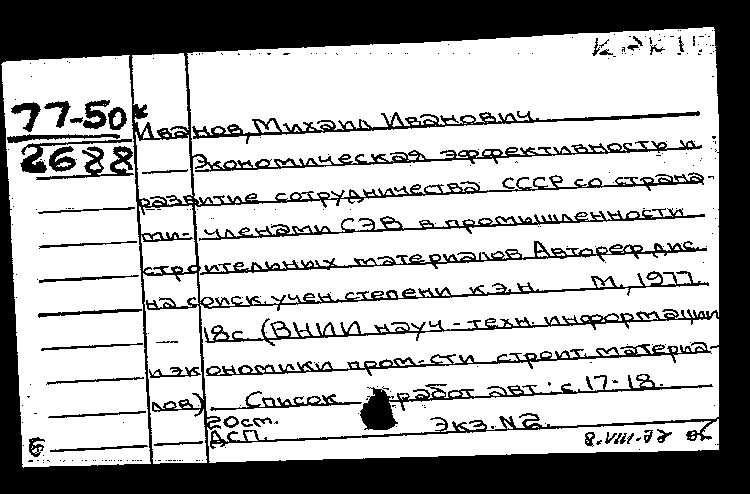 77-50к
2688
Иванов, Михаил Иванович.
Экономическая эффективность и
развитие сотрудничества СССР со страна-
ми-членами СЭВ в промышленности
строительных материалов. Автореф. дис.
на соиск. учен. степени к.э.н. М., 1977.
18с (ВНИИ науч-техн. информации
и экономики пром-сти строит. материа-
лов). Список работ авт.: с.17-18.
20см.
ДСП. Экз. N2.
8.VIII.77